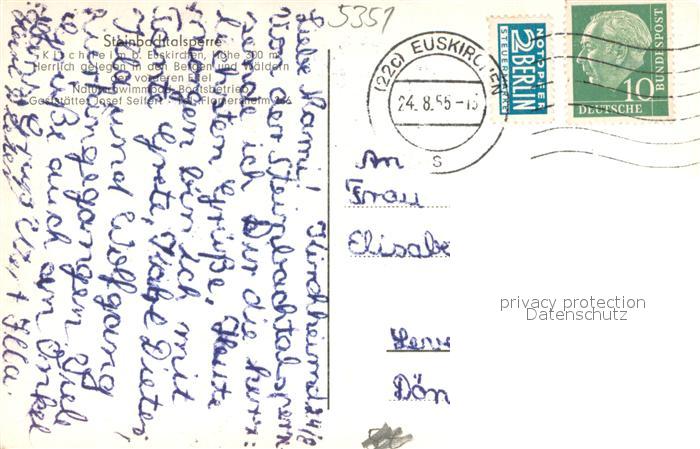 5351
Steinbachtalsperre
Kirchheim b. Euskirchen, Höhe 300 m
Herrlich gelegen in den Bergen und Wäldern
der vorderen Eifel
Naturschwimmbad - Bootsbetrieb
Gaststätte Josef Seifert - Tel. Flamersheim
Kirchheim 24/8
Liebe Mami!
Von der Steinbachtalsperre
sende ich Dir die herz-
lichsten Grüße. Heute
morgen bin ich mit
Tante Grete, Käthe, Dieter,
und Wolfgang
hingegangen. Viel
Grüße auch an Onkel
Ulla.
(22c) EUSKIRCHEN
24.8.55-15
s
NOTOPFER
2 BERLIN
STEUERMARKE
DEUTSCHE
BUNDESPOST
10
An
Frau
Elisabe
Dön
privacy protection
Datenschutz